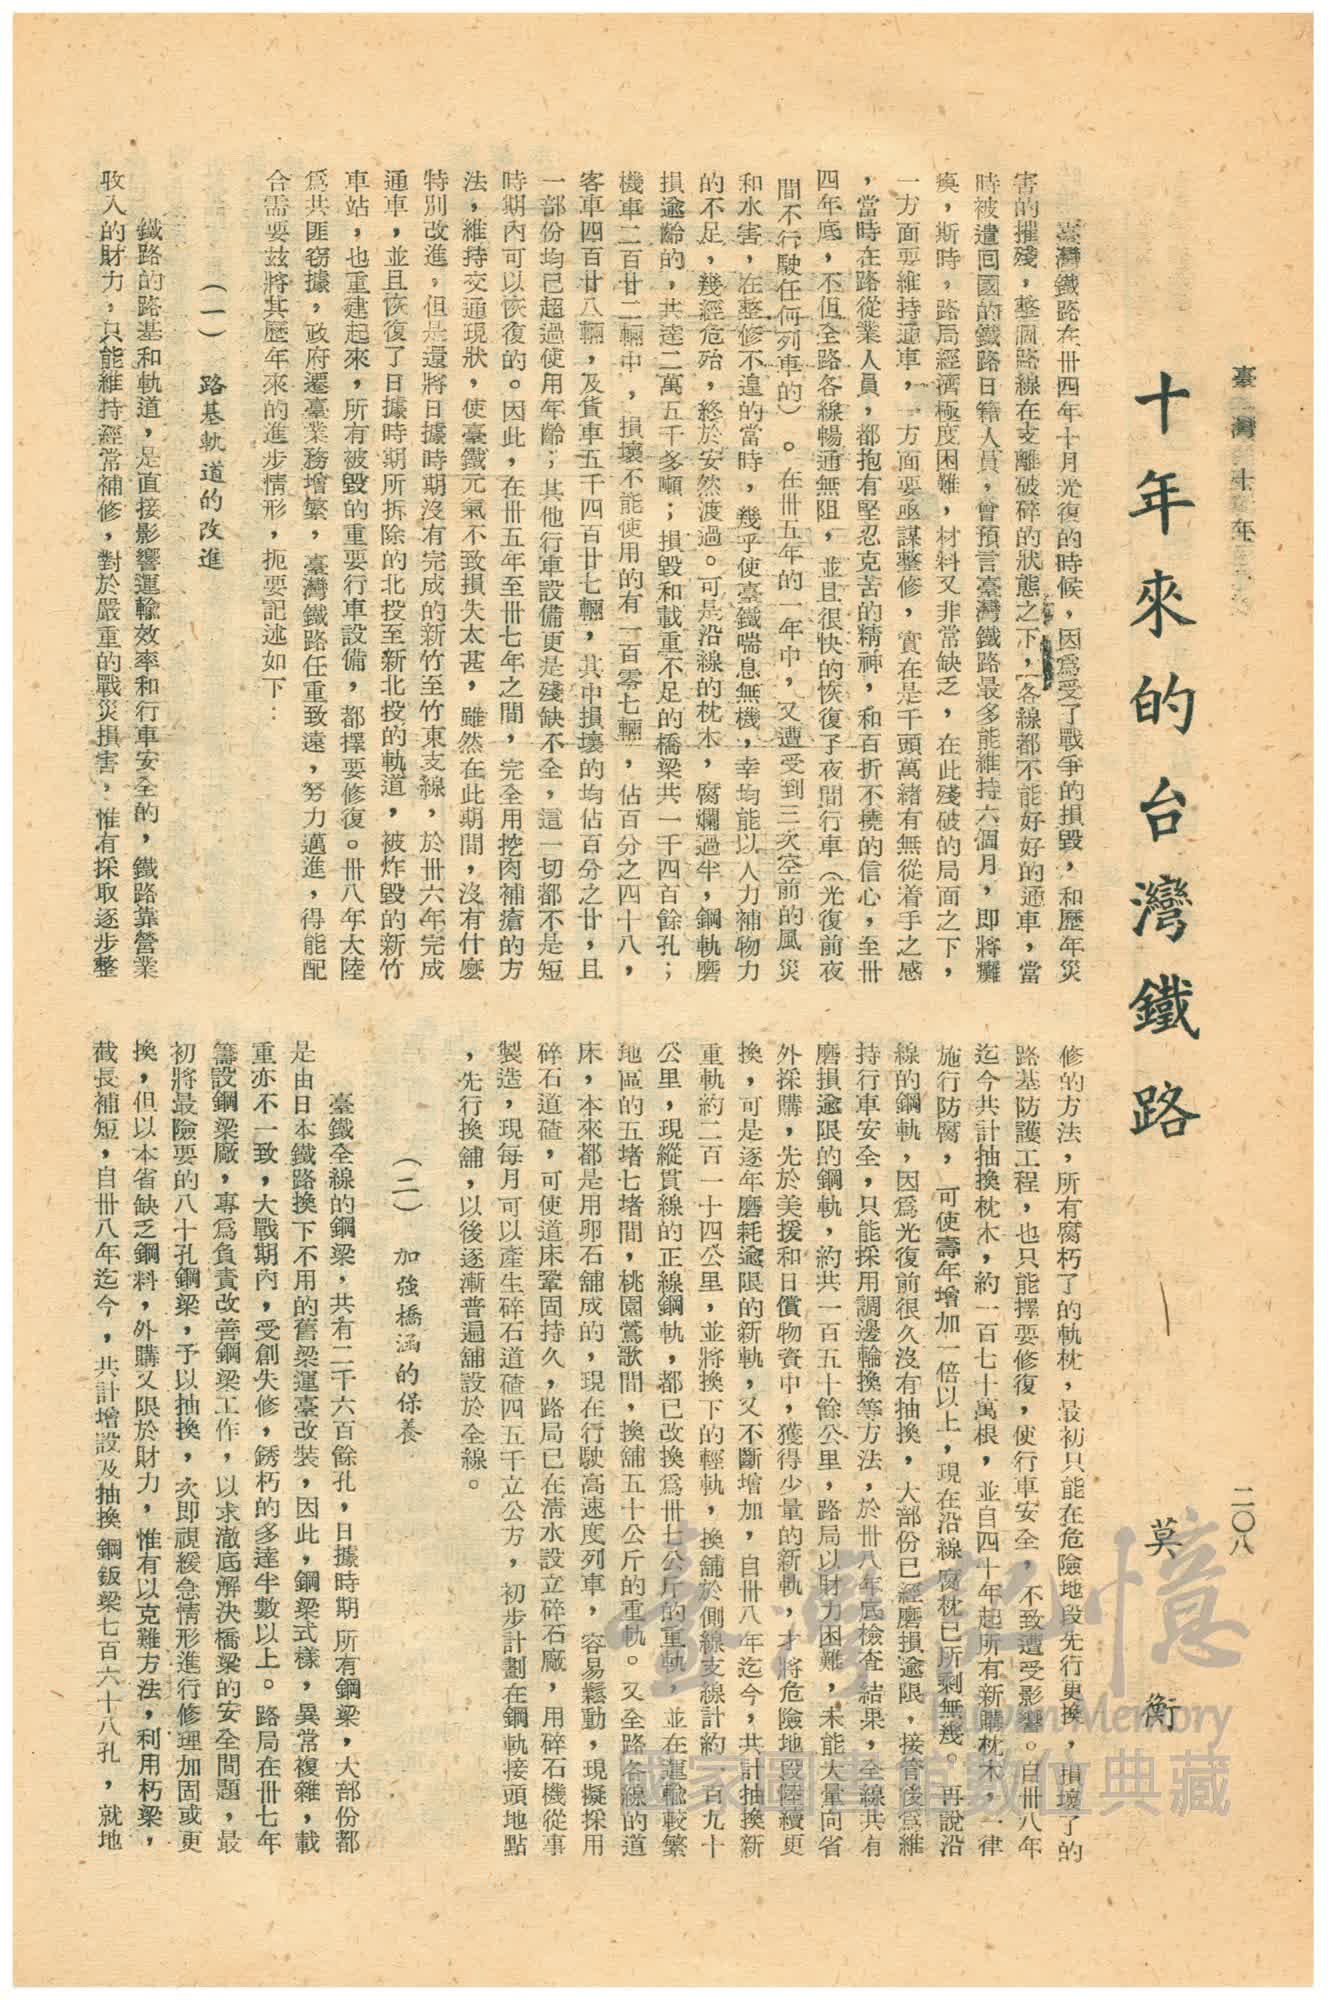 臺灣十年
二〇八
十年來的台灣鐵路
莫衡
臺灣鐵路在卅四年十月光復的時候，因爲受了戰爭的損毀，和歷年災
害的摧殘，整個路線在支離破碎的狀態之下，各線都不能好好的通車，當
時被遣回國的鐵路日籍人員，曾預言臺灣鐵路最多能維持六個月，即將癱
瘓，斯時，路局經濟極度困難，材料又非常缺乏，在此殘破的局面之下，
一方面要維持通車，一方面要亟謀整修，實在是千頭萬緒有無從着手之感
，當時在路從業人員，都抱有堅忍克苦的精神，和百折不撓的信心，至卅
四年底，不但全路各線暢通無阻，並且很快的恢復了夜間行車（光復前夜
間不行駛任何列車的）。在卅五年的一年中，又遭受到三次空前的風災
和水害，在整修不遑的當時，幾乎使臺鐵喘息無機，幸均能以人力補物力
的不足，幾經危殆，終於安然渡過。可是沿線的枕木，腐爛過半，鋼軌磨
損逾齡的，共達二萬五千多噸；損毀和載重不足的橋梁共一千四百餘孔；
機車二百廿二輛中，損壞不能使用的有一百零七輛，佔百分之四十八，
客車四百廿八輛，及貨車五千四百廿七輛，其中損壞的均佔百分之廿，且
一部份均已超過使用年齡；其他行車設備更是殘缺不全，這一切都不是短
時期內可以恢復的。因此，在卅五年至卅七年之間，完全用挖肉補瘡的方
法，維持交通現狀，使臺鐵元氣不致損失太甚，雖然在此期間，沒有什麼
特別改進，但是還將日據時期沒有完成的新竹至竹東支線，於卅六年完成
通車，並且恢復了日據時期所拆除的北投至新北投的軌道，被炸毀的新竹
車站，也重建起來，所有被毀的重要行車設備，都擇要修復。卅八年大陸
爲共匪窃據，政府遷臺業務增繁，臺灣鐵路任重致遠，努力邁進，得能配
合需要茲將其歷年來的進步情形，扼要記述如下：
（一）路基軌道的改進
鐵路的路基和軌道，是直接影響運輸效率和行車安全的，鐵路靠營業
收入的財力，只能維持經常補修，對於嚴重的戰災損害，惟有採取逐步整
修的方法，所有腐朽了的軌枕，最初只能在危險地段先行更換，損壞了的
路基防護工程，也只能擇要修復，使行車安全，不致遭受影響。自卅八年
迄今共計抽換枕木，約一百七十萬根，並自四十年起所有新購枕木，一律
施行防腐，可使壽年增加一倍以上，現在沿線腐枕已所剩無幾。再說沿
線的鋼軌，因爲光復前很久沒有抽換，大部份已經磨損逾限，接管後爲維
持行車安全，只能採用調邊輪換等方法，於卅八年底檢查結果，全線共有
磨損逾限的鋼軌，約共一百五十餘公里，路局以財力困難，未能大量向省
外採購，先於美援和日償物資中，獲得少量的新軌，才將危險地段陸續更
換，可是逐年磨耗逾限的新軌，又不斷增加，自卅八年迄今，共計抽換新
重軌約二百一十四公里，並將換下的輕軌，換舖於側線支線計約一百九十
公里，現縱貫線的正線鋼軌，都已改換爲卅七公斤的重軌，並在運輸較繁
地區的五堵七堵間，桃園鶯歌間，換舖五十公斤的重軌。又全路各線的道
床，本來都是用卵石舖成的，現在行駛高速度列車，容易鬆動，現擬採用
碎石道碴，可使道床鞏固持久，路局已在清水設立碎石廠，用碎石機從事
製造，現每月可以產生碎石道碴四五千立公方，初步計劃在鋼軌接頭地點
，先行換舖，以後逐漸普遍舖設於全線。
（二）加強橋涵的保養
臺鐵全線的鋼梁，共有二千六百餘孔，日據時期所有鋼梁，大部份都
是由日本鐵路換下不用的舊梁運臺改裝，因此，鋼梁式樣，異常複雜，載
重亦不一致，大戰期內，受創失修，銹朽的多達半數以上。路局在卅七年
籌設鋼梁廠，專爲負責改善鋼梁工作，以求澈底解決橋梁的安全問題，最
初將最險要的八十孔鋼梁，予以抽換，次即視緩急情形進行修理加固或更
換，但以本省缺乏鋼料，外購又限於財力，惟有以克難方法，利用朽梁，
截長補短，自卅八年迄今，共計增設及抽換鋼鈑梁七百六十八孔，就地
臺灣記憶
Taiwan Memory
國家圖書館數位典藏